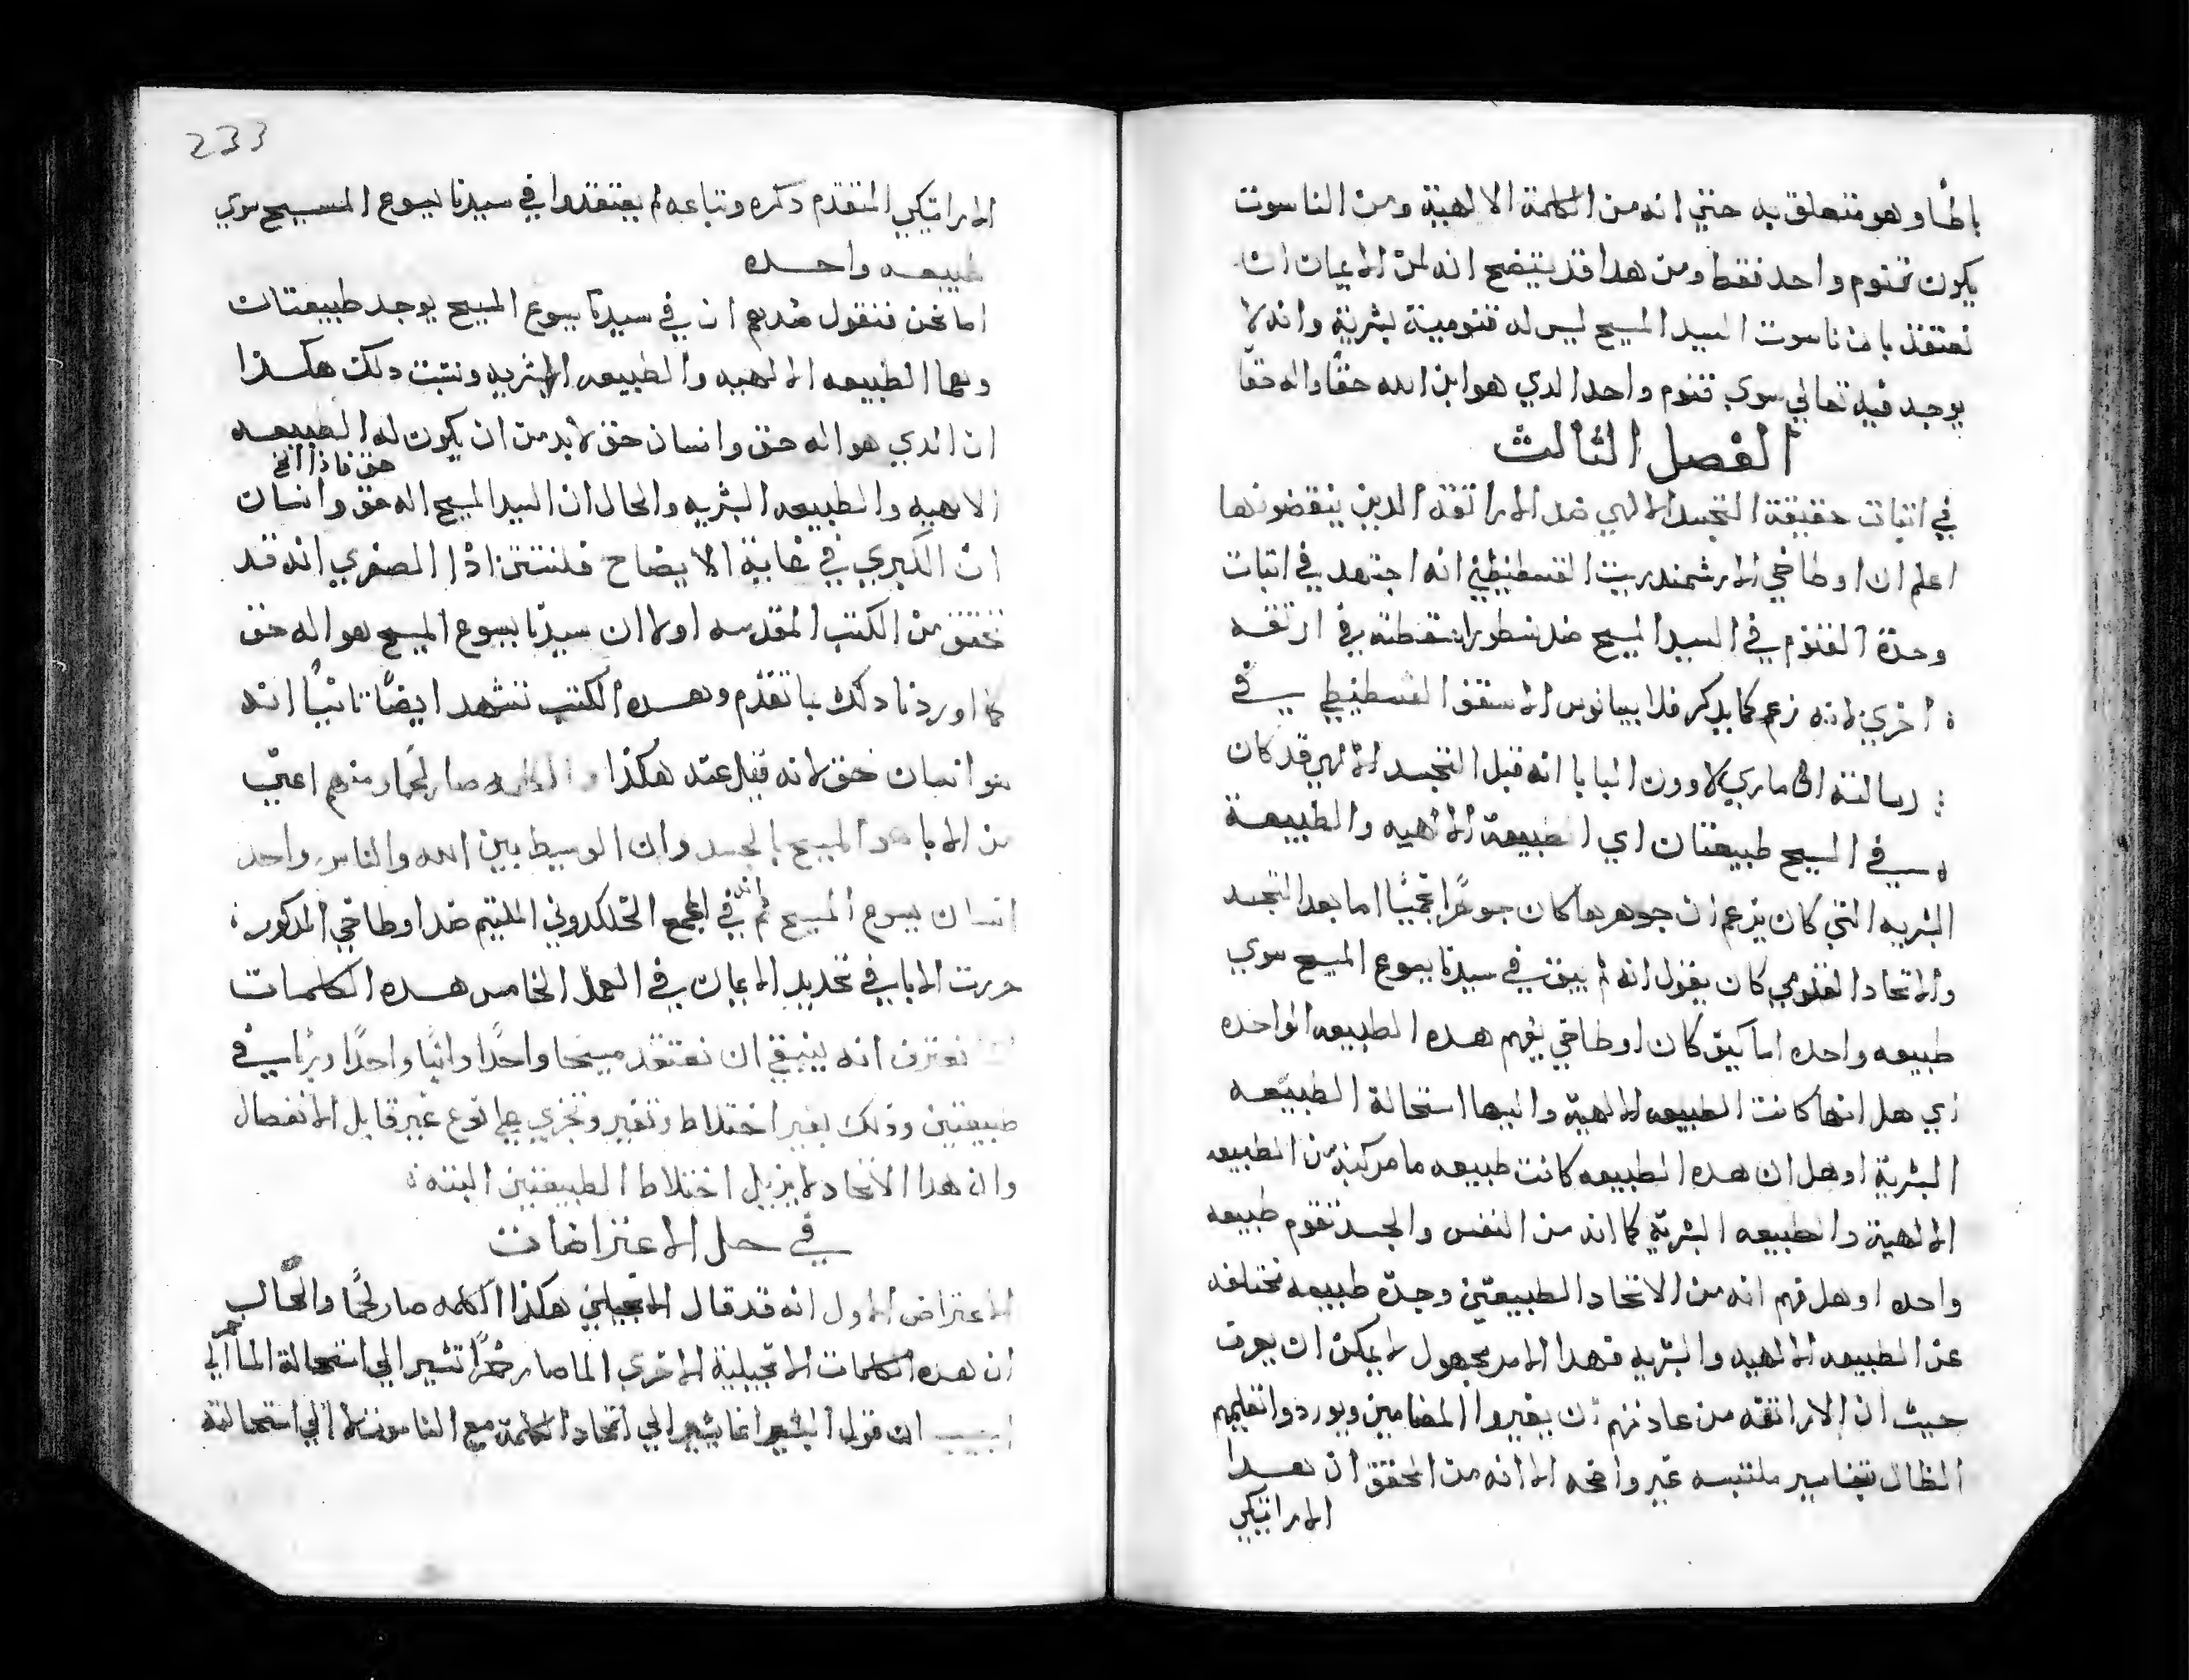 باطًا وهو متعلق به حتي انه من الكلمة الالهية ومن الناسوت
يكون قنوم واحد فقط ومن هدا قد يتضح انه لمن الايمان ان
نعتقد بان ناسوت السيد المسيح ليس له قنومية بشرية وانه لا
يوجد فيه تعالي سوي قنوم واحد الدي هو ابن الله حقًا واله حقًا
الفصل الثالث
في اتبات حقيقة التجسد الالهي ضد الاراتقه الدين ينقضونها
اعلم ان اوطاخي الارشمندريت القسطنطيني انه اجتهد في اتبات
وحدة القنوم في السيد المسيح ضد نسطور اسقطته في ارتقه
اخري لانه زعم كما يدكر فلابيانوس الاسقف القسطنطيني في
رسالته الي ماري لاوون البابا انه قبل التجسد الالهي قد كان
في المسيح طبيعتان اي الطبيعة الالهيه والطبيعة
البشريه التي كان يزعم ان جوهرها كان جوهرًا نجميًا اما بعد التجسد
والاتحاد القنومي كان يقول انه لم يبق في سيدنا يسوع المسيح سوي
طبيعه واحده اما كيف كان اوطاخي يفهم هده الطبيعه الواحده
اي هل انها كانت الطبيعه الالهية واليها استحالة الطبيعه
البشرية او هل ان هده الطبيعه كانت طبيعه ما مركبة من الطبيعه
الالهية والطبيعه البشرية كما انه من النفس والجسد تقوم طبيعه
واحده او هل فهم انه من الاتحاد الطبيعتين وجدة طبيعه تختلف
عن الطبيعه الالهيه والبشريه فهدا الامر مجهول لا يمكن ان يعرف
حيث ان الاراتقه من عادتهم ان يغيروا المضامين ويوردوا تعليمهم
الظال بتفاسير ملتبسه غير واضحه الا انه من المحقق ان هدا
الاراتيكي
233
الاراتيكي المتقدم دكره وتباعه لم يعتقدوا في سيدنا يسوع المسيح سوي
طبيعه واحده
اما نحن فنقول ضدهم ان في سيدنا يسوع المسيح يوجد طبيعتان
وهما الطبيعه الالهيه والطبيعه البشريه ونتبت دلك هكذا
ان الدي هو اله حق وانسان حق لابد من ان يكون له الطبيعه
حق فاذا الخ
الالهيه والطبيعه البشريه والحال ان السيد المسيح اله حق وانسان
ان الكبري في غاية الايضاح فلنتبتن اذا الصغري انه قد
تحقق من الكتب المقدسه اولا ان سيدنا يسوع المسيح هو اله حق
كما اوردنا دلك بما تقدم وهده الكتب تشهد ايضًا تانيًا انه
هو انسان حق لانه قيل عنه هكذا والكلمه صار لحمًا ومنهم اعني
من الابا هو المسيح بالجسد وان الوسيط بين الله والناس واحد
انسان يسوع المسيح تم انه في المجمع الخلكدوني الملتيم ضد اوطاخي المدكور
حررت الابا في تحديد الايمان في العمل الخامس هده الكلمات
نعترف انه ينبغي ان نعتقد مسيحا واحدًا وابنًا واحدًا وربًا في
طبيعتين وذلك بغير اختلاط وتغير وتجزي علي نوع غير قابل الانفصال
وان هدا الاتحاد لا يزيل اختلاط الطبيعتين البته
في حل الاعتراضات
الاعتراض الاول انه قد قال الانجيلي هكذا الكلمه صار لحمًا والحال
ان هده الكلمات الانجيلية الاخري الما صار خمرًا تشير الي استحالة الما الي خمر
اجيب ان قول البشير انما يشير الي اتحاد الكلمة مع الناسوت لا الي استحالته